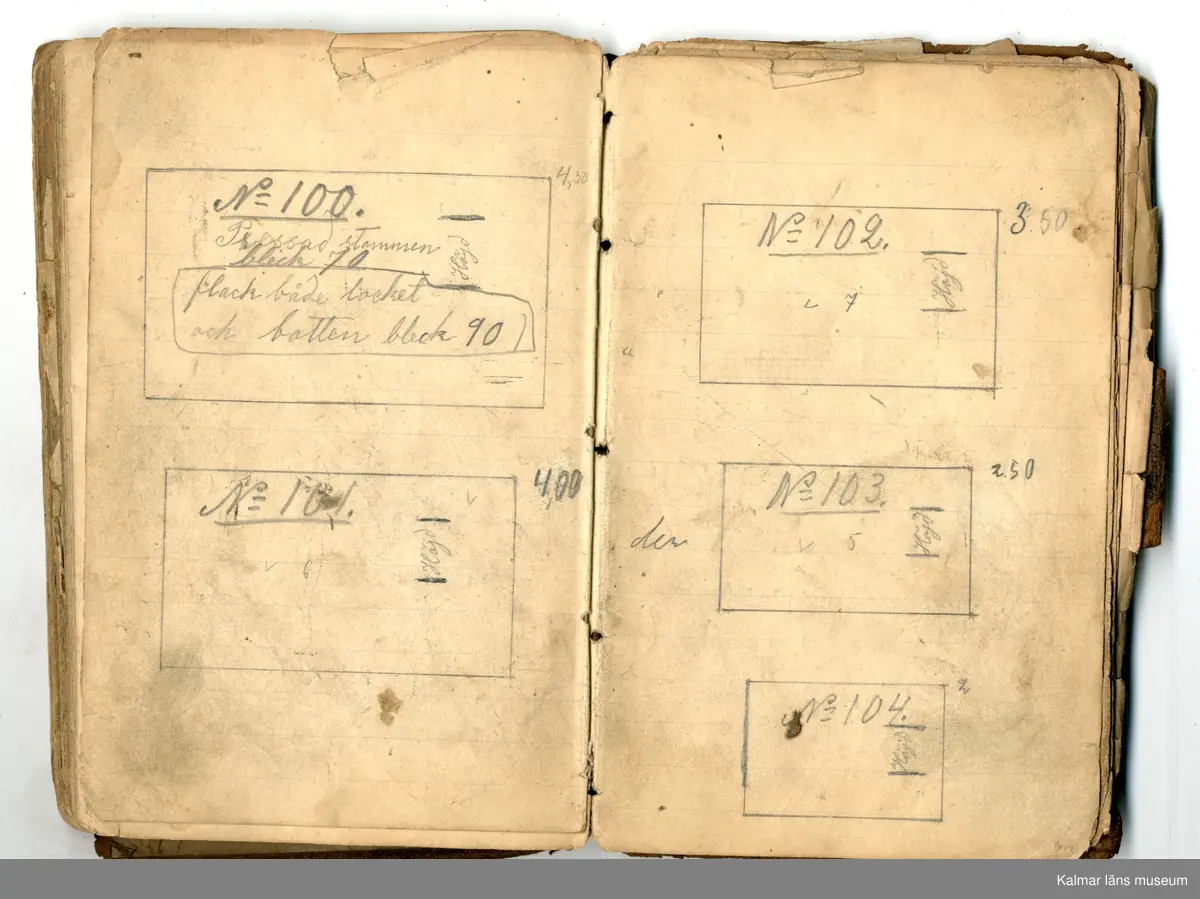 No 100.
4,50
Pressad stammen
bleck 70
Höjd
flack både locket
och botten bleck 90
No 101.
4,00
Höjd
6
No 102.
3.50
Höjd
7
No 103.
2.50
Höjd
den
5
No 104.
2
Höjd
Kalmar läns museum